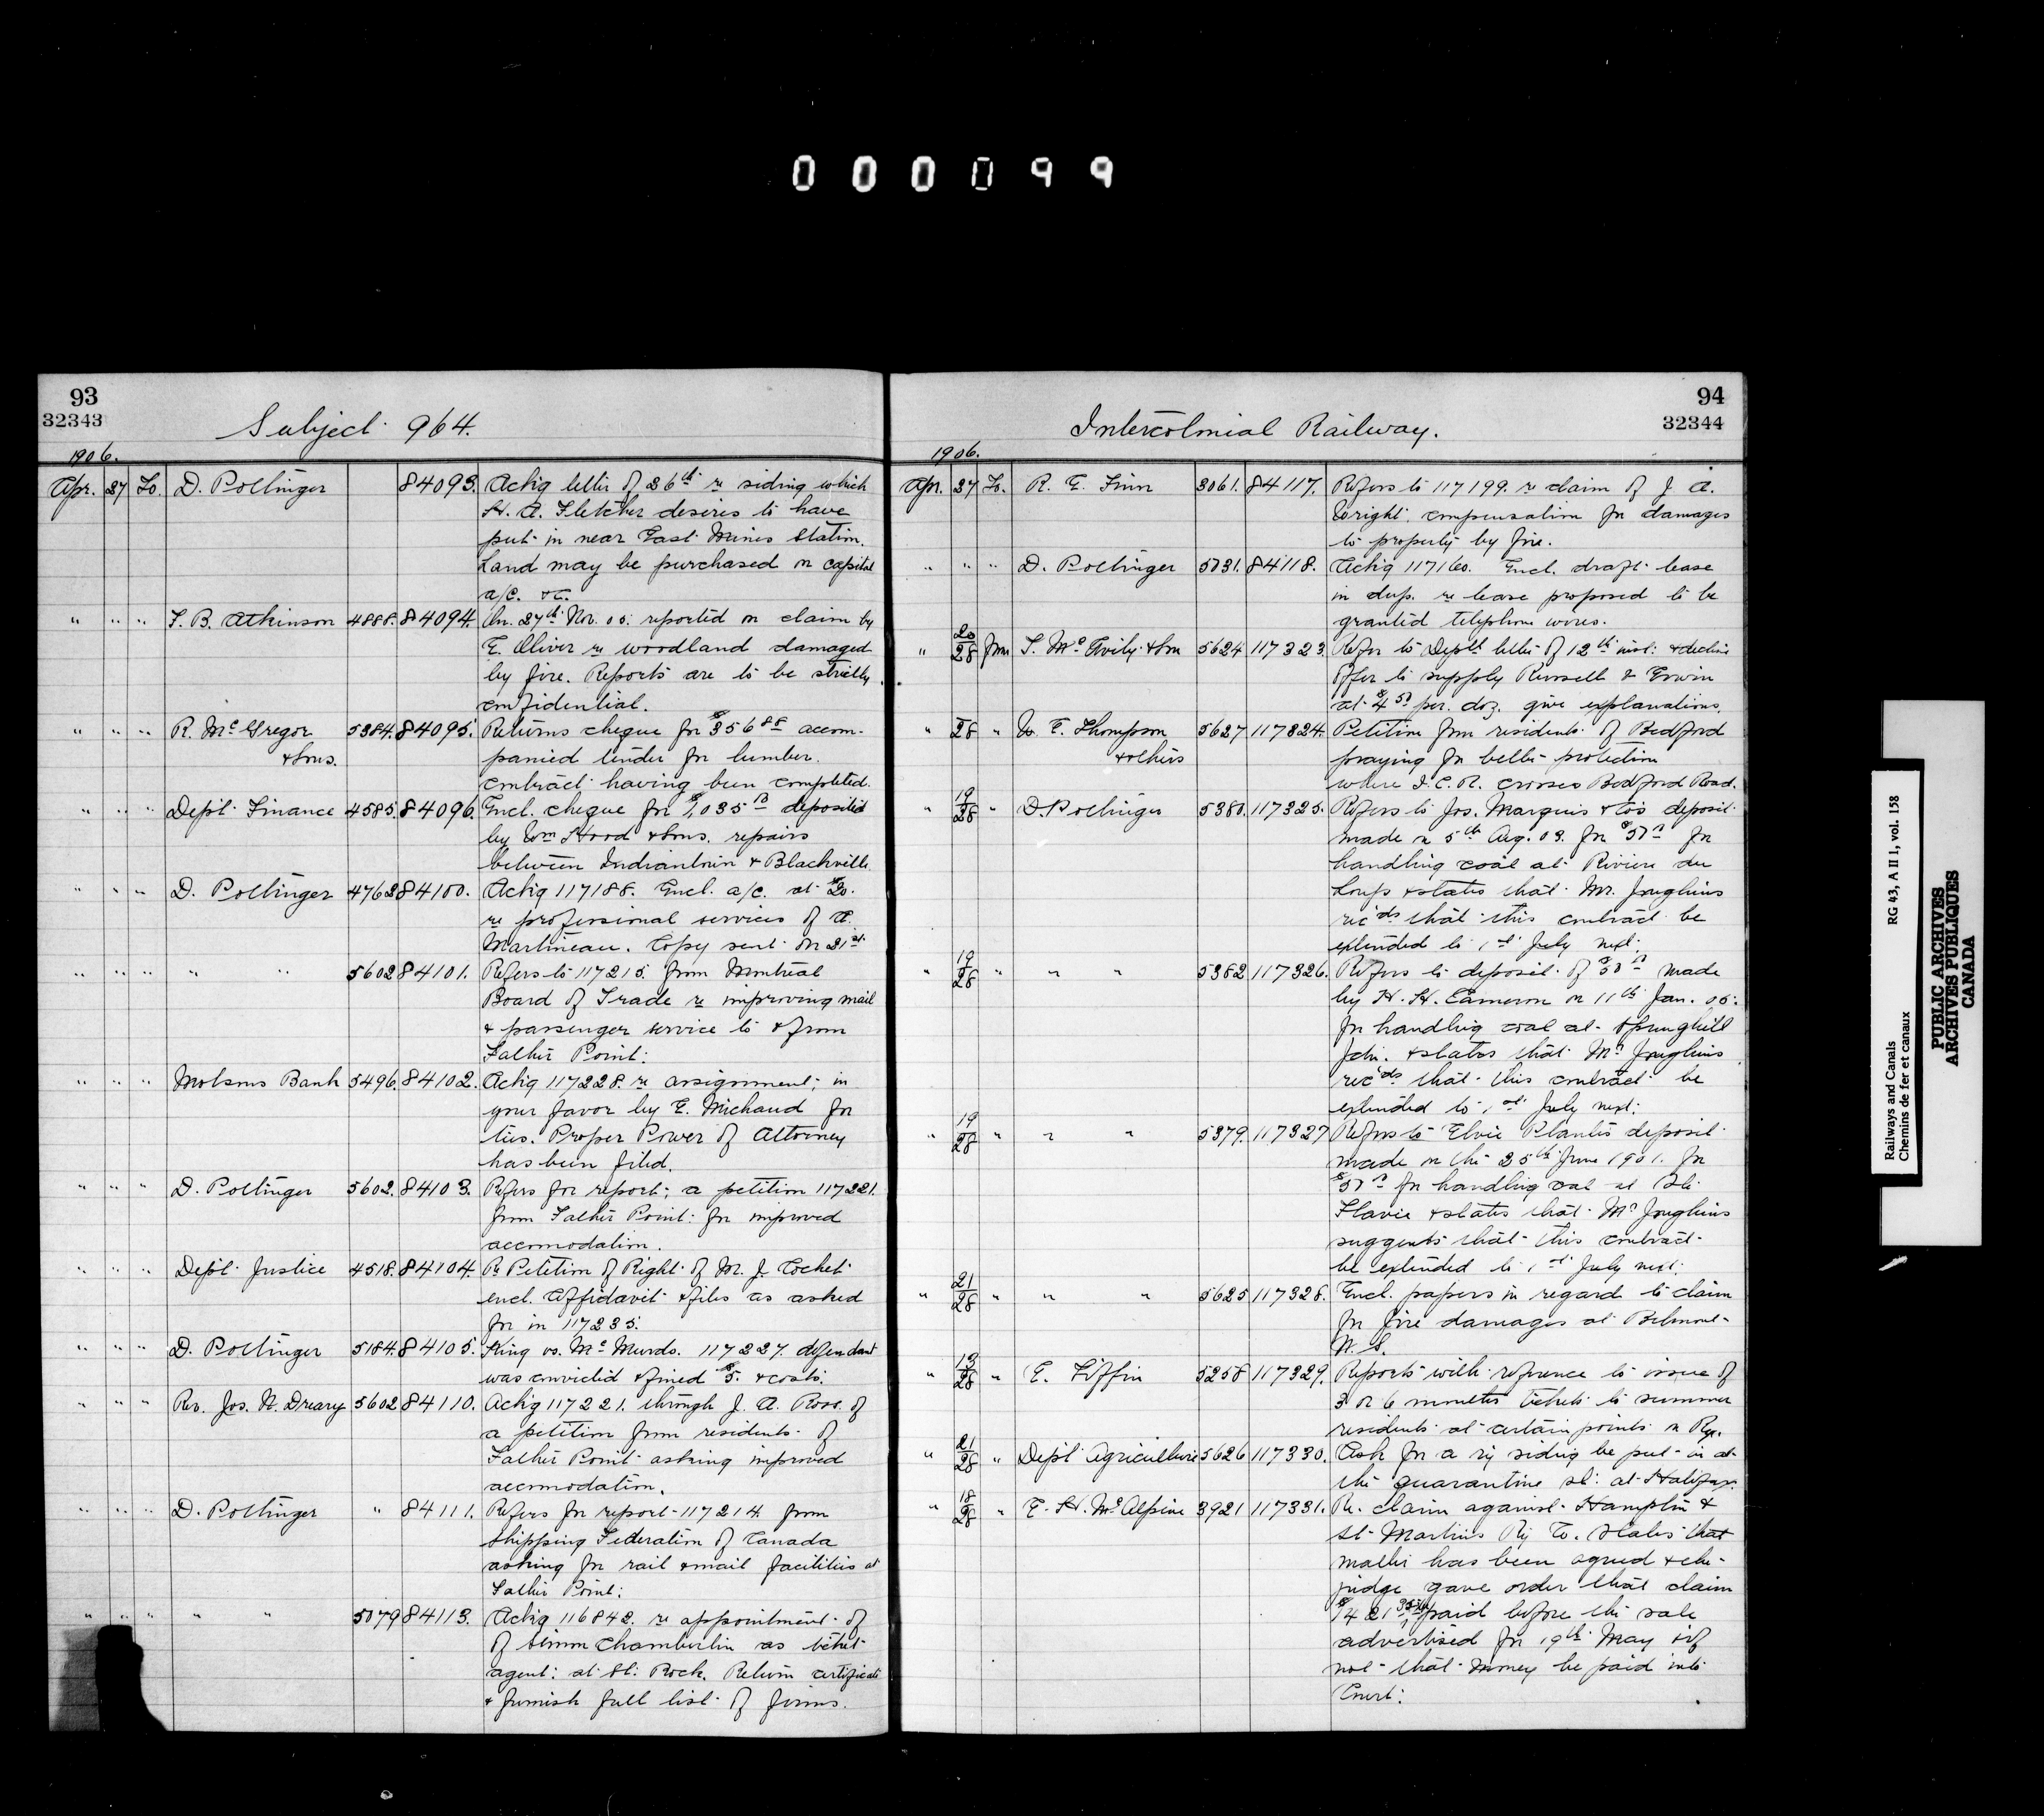 000099
93
32343
Subject 964.
1906.
Apr. 27 To. D. Pottinger 84093. Ack'g letter of 26th re siding which
H. A. Fletcher desires to have
put in near East Mines Station.
Land may be purchased on capital
a/c. &c.
" " " F. B. Atkinson 4888. 84094. On 27th Nov. 05. reported on claim by
E. Oliver re woodland damaged
by fire. Reports are to be strictly
confidential.
" " " R. McGregor 5384. 84095. Returns cheque for $356 88 accom-
& Sons. panied tender for lumber.
contract having been completed.
" " " Dep't Finance 4585. 84096. Encl. cheque for $1,035 deposited
by Wm Hood & Sons. repairs
between Indiantown & Blackville.
" " " D. Pottinger 4762 84100. Ack'g 117188. Encl. a/c. at $20.
re professional services of A.
Martineau. Copy sent on 21st.
" " " " " 5602 84101. Refers to 117215. from Montreal
Board of Trade re improving mail
& passenger service to & from
Father Point.
" " " Molsons Bank 5496. 84102. Ack'g 117228. re assignment in
your favor by E. Michaud for
ties. Proper Power of Attorney
has been filed.
" " " D. Pottinger 5602. 84103. Refers for report, a petition 117221.
from Father Point for improved
accomodation.
" " " Dep't Justice 4518. 84104. Re Petition of Right of M. J.
encl. Affidavit & files as asked
for in 117235.
" " " D. Pottinger 5184. 84105. King vs. McMurdo. 117227. defendant
was convicted & fined $5. & costs.
" " " Rev. Jos. N. Dreary 5602 84110. Ack'g 117221. through J. A. Ross. of
a petition from residents of
Father Point asking improved
accomodation.
" " " D. Pottinger " 84111. Refers for report 117214. from
Shipping Federation of Canada
asking for rail & mail facilities at
Father Point.
" " " " " 5079 84113. Ack'g 116842. re appointment of
of Simon Chamberlin as ticket
agent at St. Rock. Return certificate
& furnish full list of forms.
94
32344
Intercolonial Railway.
1906.
Apr. 27 To. R. E. Finn 3061. 84117. Refers to 117199. re claim of J. A.
Wright. compensation for damages
to property by fire.
" " " D. Pottinger 5031. 84118. Ack'g 117160. Encl. draft lease
in dup. re lease proposed to be
granted telephone wires.
" 20/28 from T. McAvity & Son 5624 117323. Refer to Deptl letter of 12th inst. & decline
offer to supply Russell & Erwin
at $4 50 per. doz. give explanations.
" 28 " W. E. Thompson 5627 117324. Petition from residents of Bedford
& others praying for better protection
where I.C.R. crosses Bedford Road.
" 19/28 " D. Pottinger 5380. 117325. Refers to Jos. Marquis & Co's deposit
made on 5th Aug. 03. for $50 for
handling coal at Riviere du
Loup & states that Mr. Joughins
rec'ds that this contract be
extended to 1st July next.
" 19/28 " " " 5382 117326. Refers to deposit of $50 made
by H. H. Cameron on 11th Jan. 05.
for handling coal at Springhill
Jctn. & states that Mr Joughins
rec'ds that this contract be
extended to 1st July next.
" 19/28 " " " 5379. 117327 Refers to Elvie Plante's deposit
made on the 25th June 1901. for
$50 for handling coal at Ste.
Flavie & states that Mr Joughins
suggests that this contract
be extended to 1st July next.
" 21/28 " " " 5625 117328. Encl. papers in regard to claim
for fire damages at Belmont
N. S.
" 13/28 " E. Tiffin 5258 117329. Reports with reference to issue of
3 or 6 months tickets to summer
residents at certain points on Ry.
" 21/28 " Dept Agriculture 5626 117330. Ask for a ry siding be put in at
the quarantine st. at Halifax.
" 18/28 " E. H. McAlpine 3921 117331. Re. claim against Hampton &
St. Martins Ry Co. States that
matter has been agreed & the
judge gave order that claim
$1421 paid before the sale
advertised for 19th May & if
not that money be paid into
Court.
Railways and Canals RG 43, A II 1, vol. 158
Chemins de fer et canaux
PUBLIC ARCHIVES
ARCHIVES PUBLIQUES
CANADA